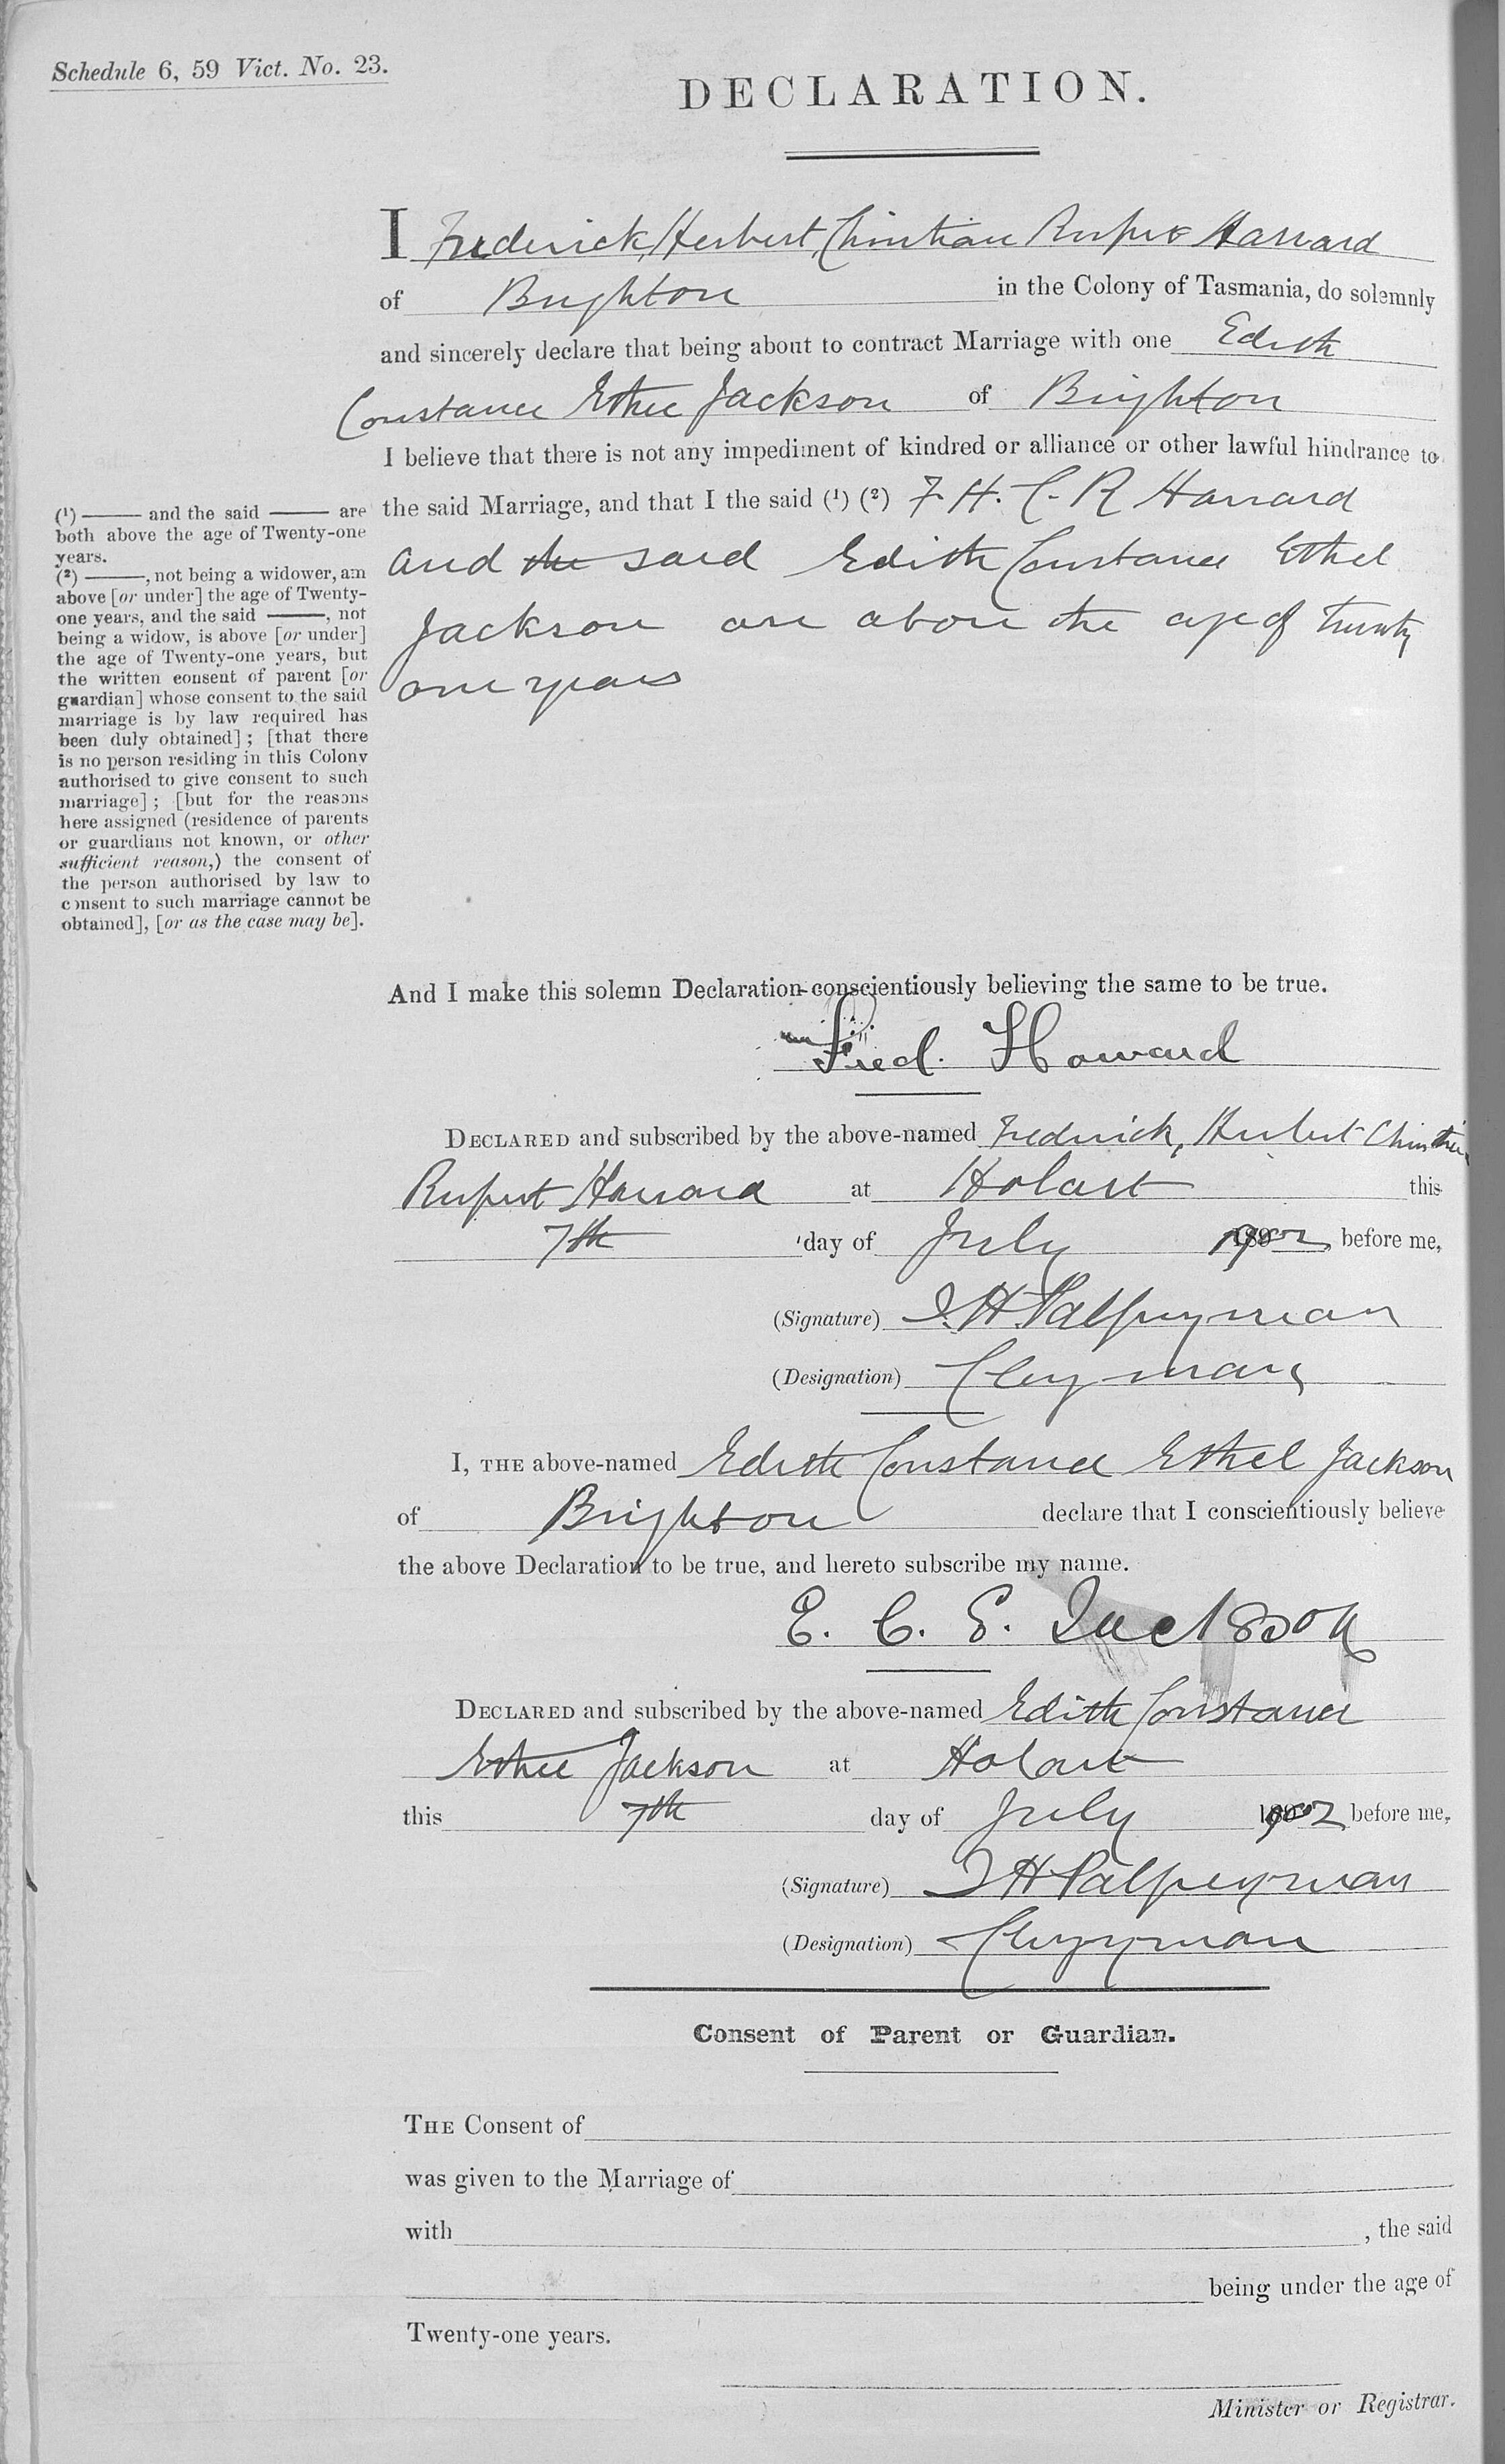 Schedule 6, 59 Vict. No. 23.
DECLARATION.
I Frederick, Herbert, Christian Rupert Harrard
of Brighton in the Colony of Tasmania, do solemnly
and sincerely declare that being about to contract Marriage with one Edith
Constance Ethel Jackson of Brighton
I believe that there is not any impediment of kindred or alliance or other lawful hindrance to
the said Marriage, and that I the said (1) (2) F. H. C. R Harrard
and the said Edith Constance Ethel
Jackson are above the age of twenty
one years
(1) —— and the said —— are
both above the age of Twenty-one
years.
(2) ——, not being a widower, am
above [or under] the age of Twenty-
one years, and the said ——, not
being a widow, is above [or under]
the age of Twenty-one years, but
the written consent of parent [or
guardian] whose consent to the said
marriage is by law required has
been duly obtained]; [that there
is no person residing in this Colony
authorised to give consent to such
marriage]; [but for the reasons
here assigned (residence of parents
or guardians not known, or other
sufficient reason,) the consent of
the person authorised by law to
consent to such marriage cannot be
obtained], [or as the case may be].
And I make this solemn Declaration conscientiously believing the same to be true.
Fred. Howard
DECLARED and subscribed by the above-named Frederick, Herbert Christian
Rupert Harrard at Hobart this
7th day of July 1902, before me,
(Signature) J. H Palfreyman
(Designation) Clergyman
I, THE above-named Edith Constance Ethel Jackson
of Brighton declare that I conscientiously believe
the above Declaration to be true, and hereto subscribe my name.
E. C. E. Jackson
DECLARED and subscribed by the above-named Edith Constance
Ethel Jackson at Hobart
this 7th day of July 1902, before me,
(Signature) J H Palfreyman
(Designation) Clergyman
Consent of Parent or Guardian.
THE Consent of
was given to the Marriage of
with , the said
being under the age of
Twenty-one years.
Minister or Registrar.